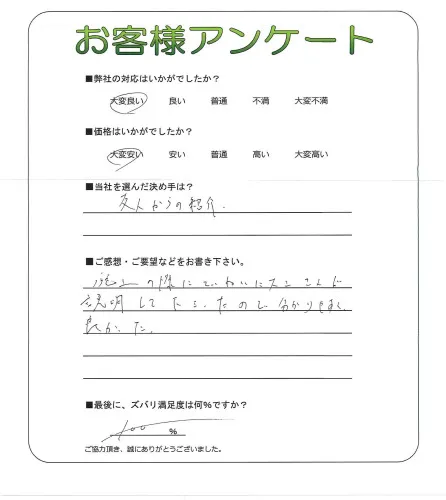 お客様アンケート
■弊社の対応はいかがでしたか?
大変良い 良い 普通 不満 大変不満
■価格はいかがでしたか?
大変安い 安い 普通 高い 大変高い
■当社を選んだ決め手は?
友人からの紹介.
■ご感想・ご要望などをお書き下さい。
の際にていねいに
説明して下さったので分かりやすく
良かった.
■最後に、ズバリ満足度は何%ですか?
100 %
ご協力頂き、誠にありがとうございました。